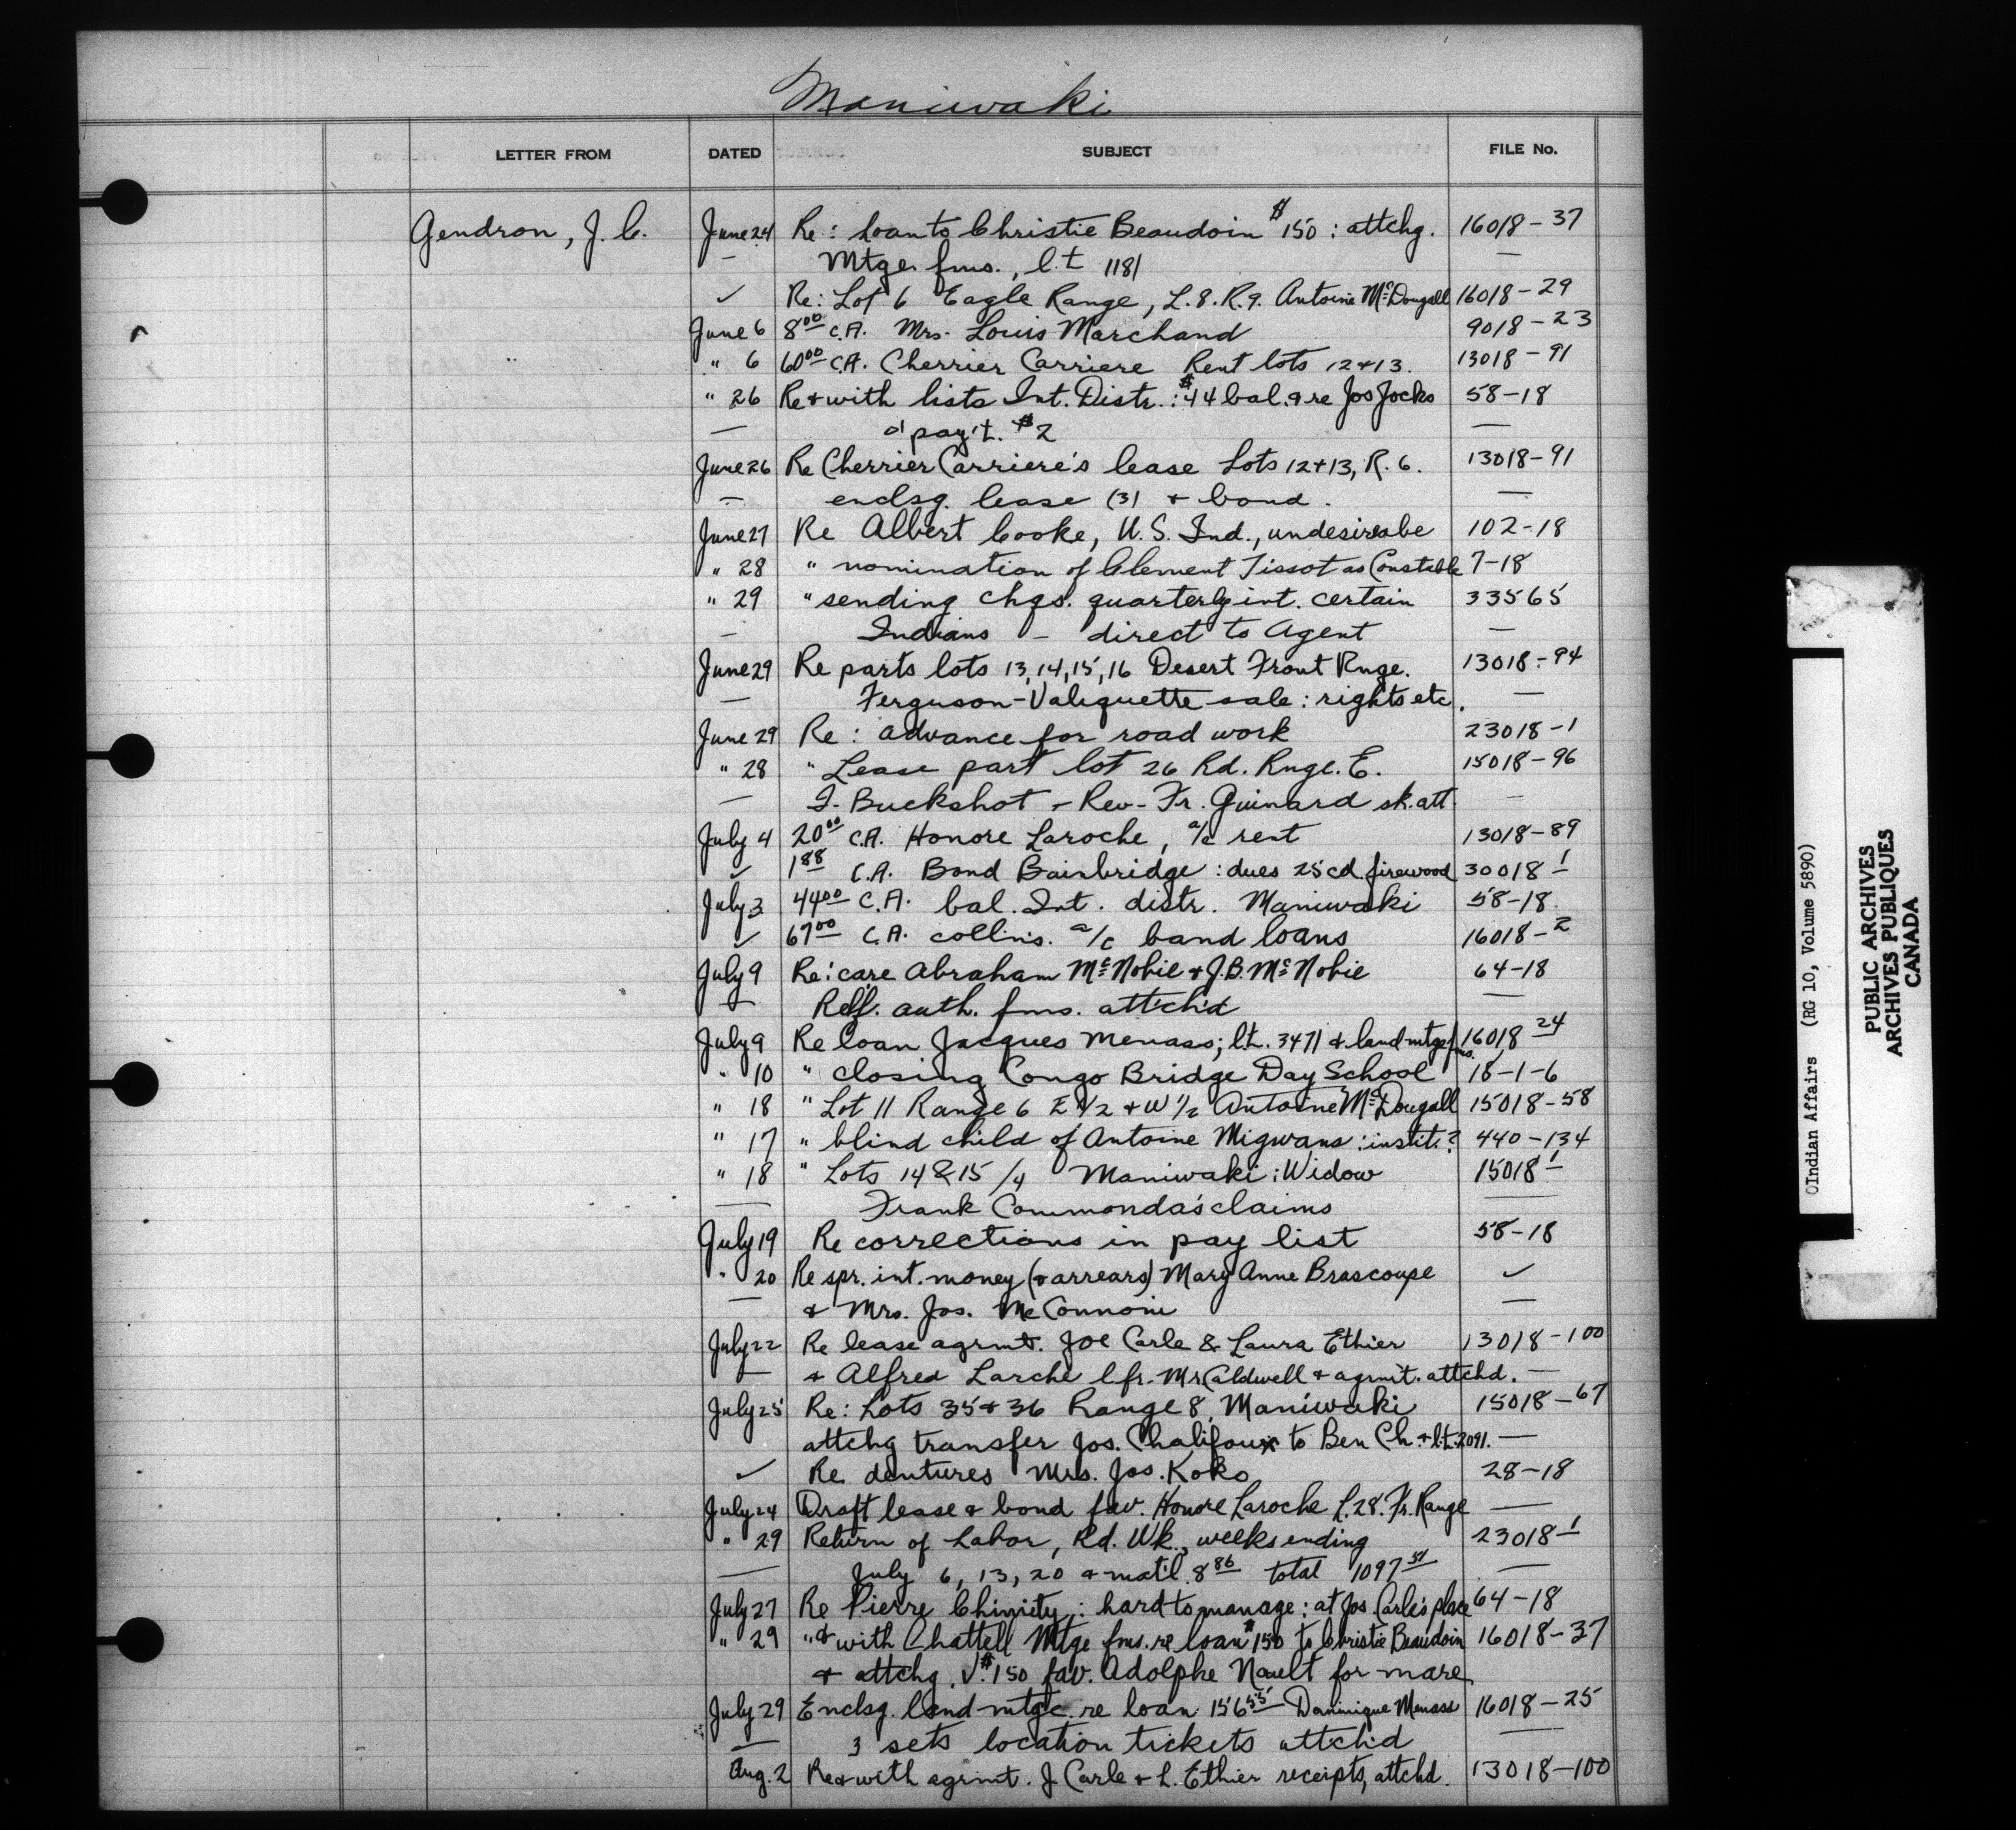 Maniwaki
LETTER FROM DATED SUBJECT FILE No.
Gendron, J. C. June 24 Re: Loan to Christie Beaudoin $150: attchg. 16018-37
— Mtge fms., l.t 1181 —
✓ Re: Lot 6 Eagle Range, L.8. R.9. Antoine McDougall 16018-29
June 6 8.00 C.A. Mrs. Louis Marchand 9018-23
" 6 60.00 C.A. Cherrier Carriere Rent lots 12+13. 13018-91
" 26 Re + with lists Int. Distr.: $44 bal. & re Jos Jocko 58-18
— o/payt. $2 —
June 26 Re Cherrier Carriere's lease Lots 12+13, R. 6. 13018-91
— enclsg. lease (3) + bond. —
June 27 Re Albert Cooke, U.S. Ind., undesireabe 102-18
" 28 " nomination of Clement Tissot as Constable 7-18
" 29 " sending chqs. quarterly int. certain 33565
— Indians — direct to Agent —
June 29 Re parts lots 13, 14, 15, 16 Desert Front Rnge. 13018-94
— Ferguson-Valiquette sale: rights etc. —
June 29 Re: advance for road work 23018-1
" 28 " Lease part lot 26 Rd. Rnge. E. 15018-96
— I. Buckshot - Rev. Fr. Guinard sk. att. —
July 4 20.00 C.A. Honore Laroche, a/c rent 13018-89
✓ 1.88 C.A. Bond Bainbridge: dues 25 cd. firewood 30018-1
July 3 44.00 C.A. bal. Int. distr. Maniwaki 58-18.
✓ 67.00 C.A. collns. a/c band loans 16018-2
July 9 Re: care Abraham McNobie + J.B. McNobie 64-18
— Relf. auth. fms. attch'd —
July 9 Re loan Jacques Menass; l.t. 3471 & land mtge fms. 16018-24
" 10 " closing Congo Bridge Day School 18-1-6
" 18 " Lot 11 Range 6 E 1/2 + W 1/2 Antoine McDougall 15018-58
" 17 " blind child of Antoine Migwans: instit.? 440-134
" 18 " Lots 14 & 15 /4 Maniwaki: Widow 15018-1
— Frank Commonda's claims —
July 19 Re corrections in pay list 58-18
" 20 Re spr. int. money (& arrears) Mary Anne Brascoupe ✓
— & Mrs. Jos. McConnoni —
July 22 Re lease agrmt. Joe Carle & Laura Ethier 13018-100
— & Alfred Larche l.fr. Mr Caldwell & agrmt. attchd. —
July 25 Re: Lots 35+36 Range 8, Maniwaki 15018-67
attchg transfer Jos. Chalifoux to Ben Ch. & l.t. 2091. —
✓ Re dentures Mrs. Jos. Koko 28-18
July 24 Draft lease & bond fav. Honore Laroche L.28. Fr. Range —
" 29 Return of Labor, Rd. Wk., weeks ending 23018-1
— July 6, 13, 20 & mat'l. 8.86 total 1097.51 —
July 27 Re Pierre Chinity: hard to manage: at Jos. Carle's place 64-18
" 29 " & with Chattell Mtge fms. re loan $150 to Christie Beaudoin 16018-37
& attchg. V. $150 fav. Adolphe Nault for mare
July 29 Enclsg. land mtge. re loan 156.55 Dominique Menass 16018-25
— 3 sets location tickets attch'd —
Aug. 2 Re & with agrmt. J. Carle & L. Ethier receipts, attchd. 13018-100
©Indian Affairs (RG 10, Volume 5890)
PUBLIC ARCHIVES
ARCHIVES PUBLIQUES
CANADA